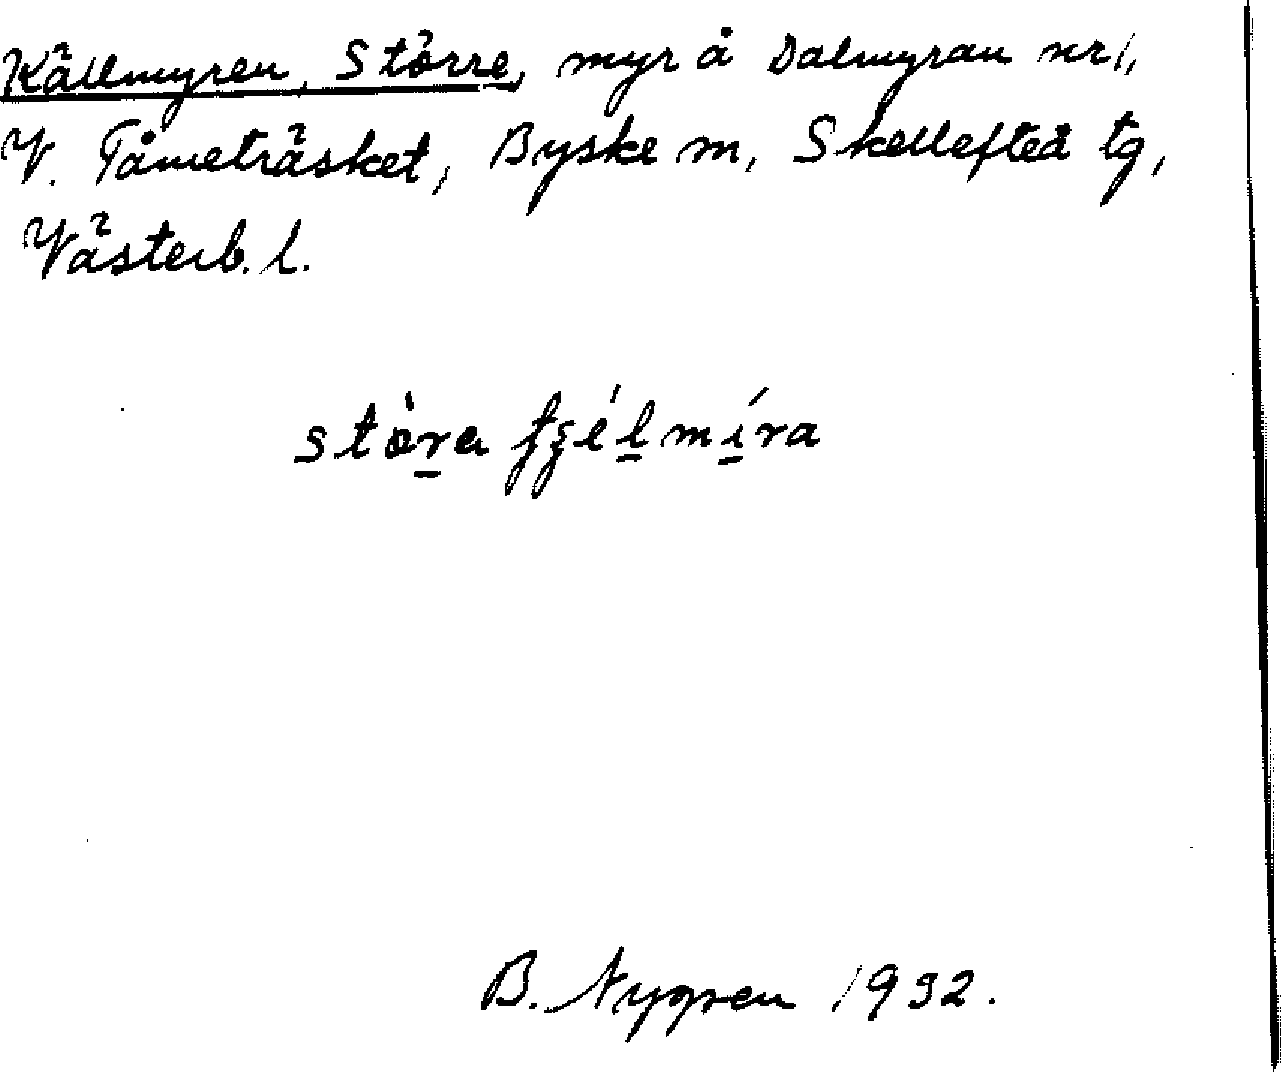 Källmyren, Större, myr å Dalmyran nr 1,
V. Tåmeträsket, Byske sn, Skellefteå tg,
Västerb. l.
stòra
B. Nygren 1932.